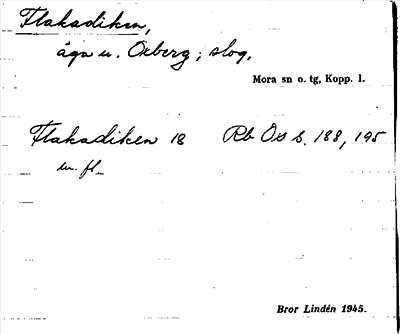 Flakadiken,
äga u. Oxberg; slog.
Mora sn o. tg, Kopp. l.
Flakadiken 18 Rb Os s. 188, 195
m. fl.
Bror Lindén 1945.